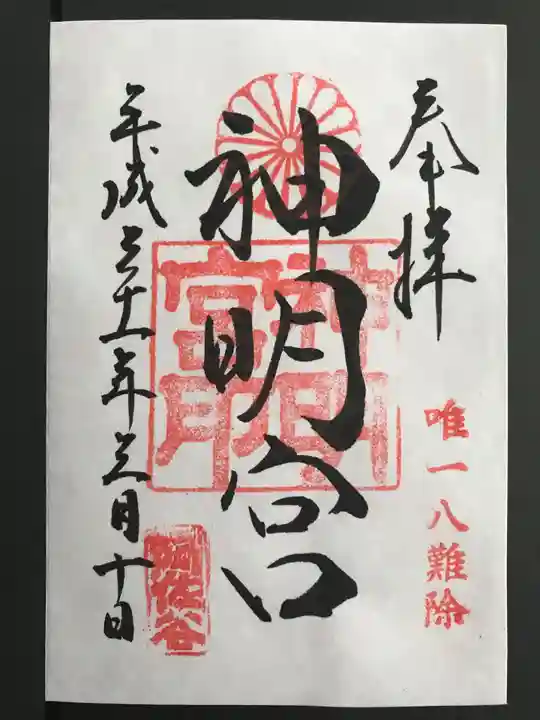 奉拝
唯一八難除
神明宮
神明宮
平成三十一年三月十日
阿佐谷